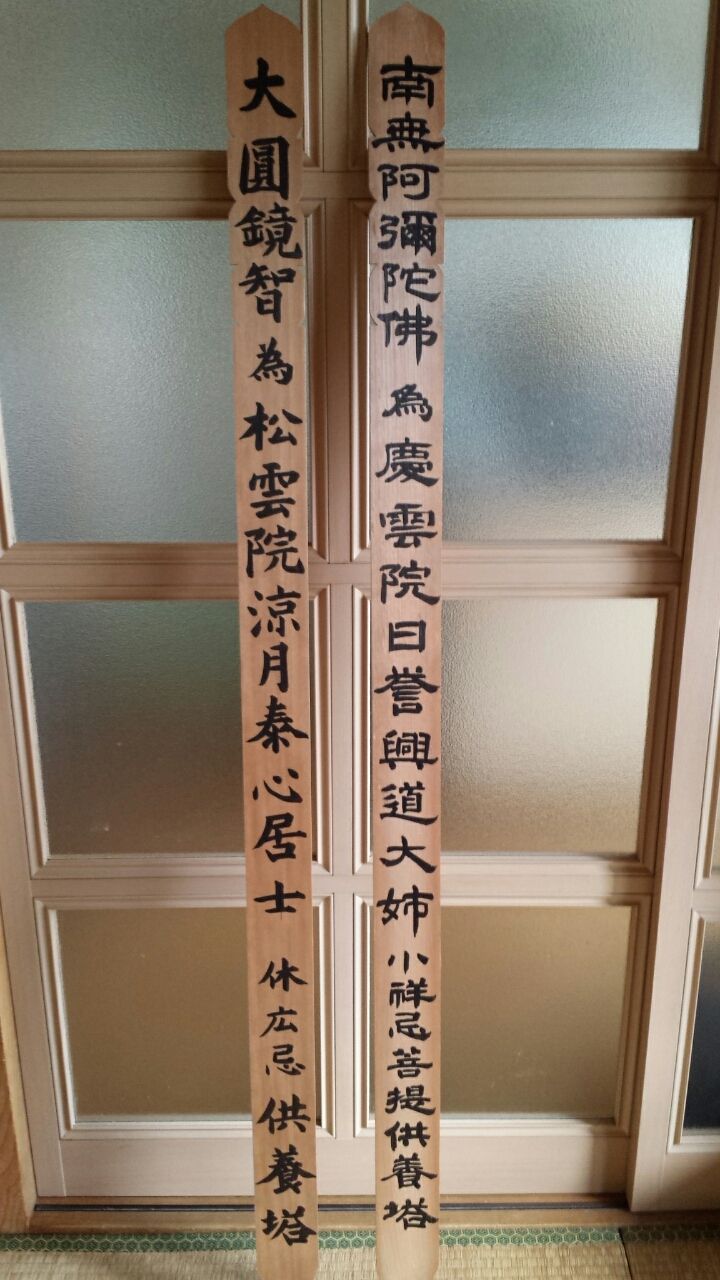 南無阿彌陀佛 為慶雲院日誉興道大姉 小祥忌菩提供養塔
大圓鏡智為松雲院涼月泰心居士 休広忌供養塔